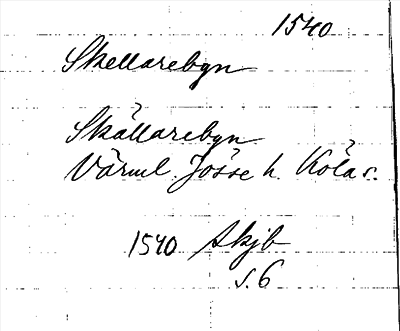 1540
Skellarebyn
Skällarebyn
Värml. Jösse h. Köla s.
1540 Skjb
s. 6